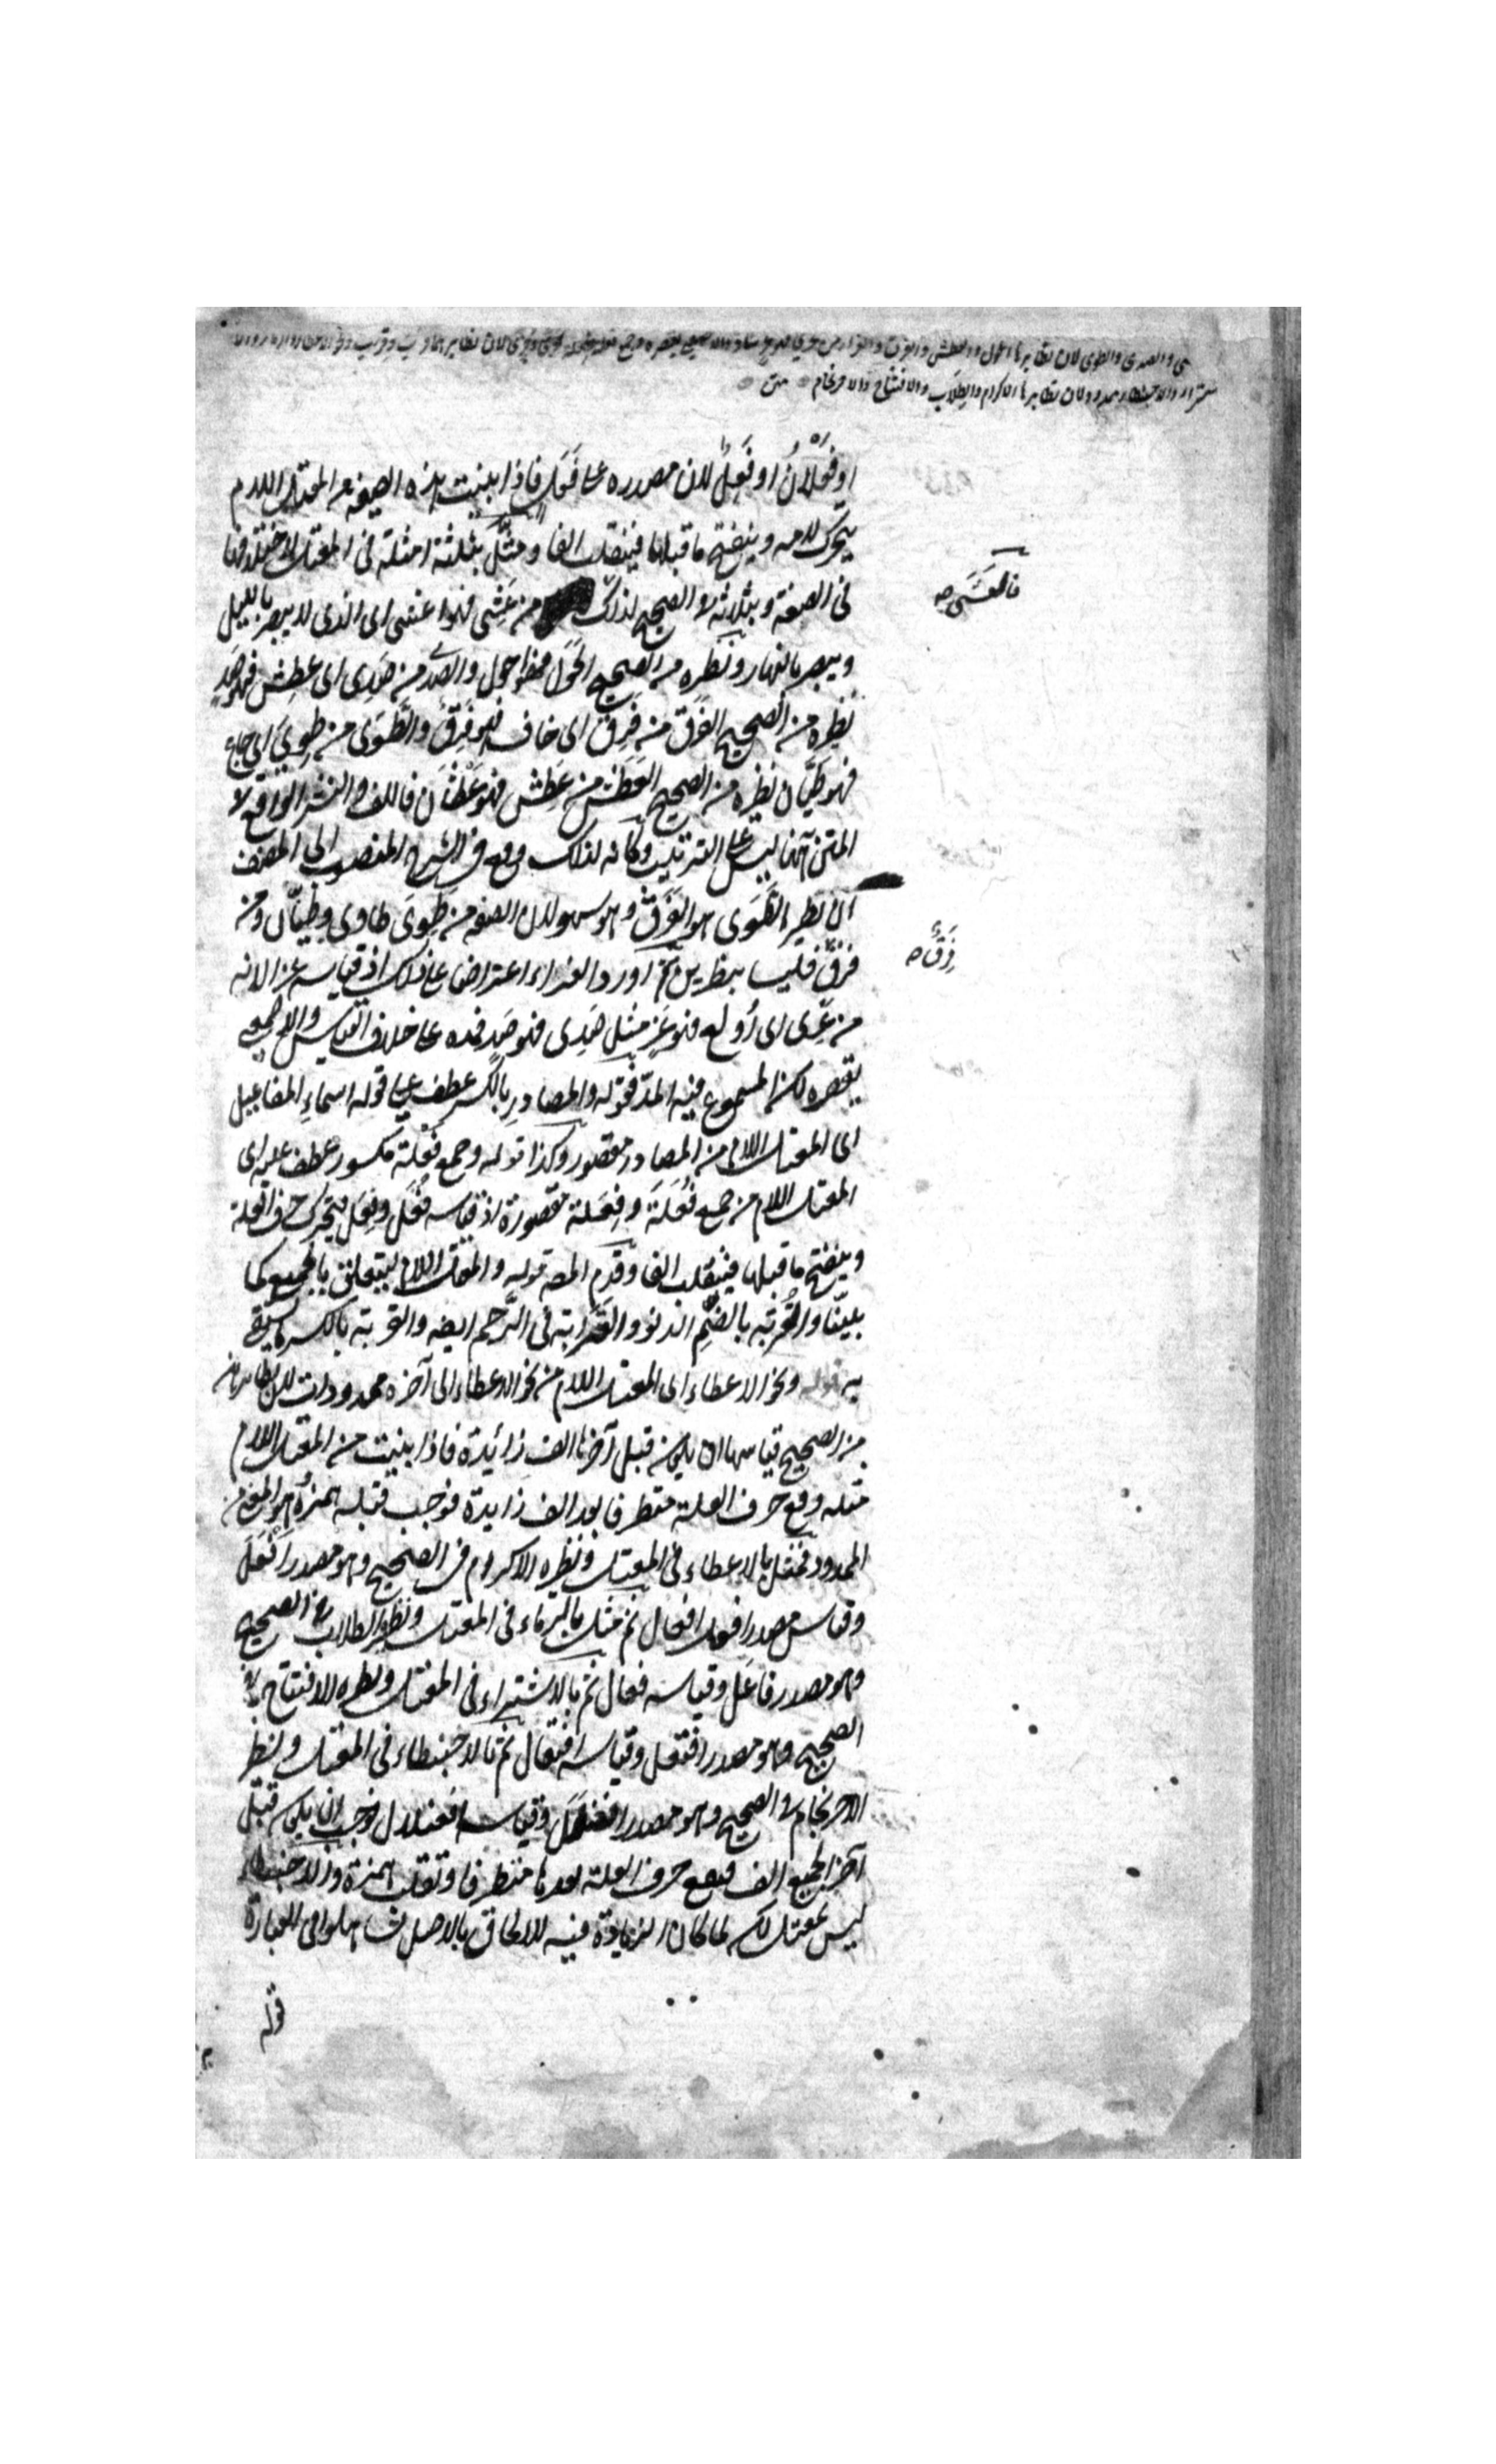 شى والصدى والطوى لان نظايرها الحول والعطش والفرق والغراء من غرى فهو غر شاذ والاصمعى يقصره وجمع فعلة وفعلة
ستراء والاحبنطاء ممدود لان نظايرها الاكرام والطلاب والافتتاح والاحرنجام متن
او فعلان او فعل لان مصدره على فعل فاذا بنيت هذه الصيغة من المعتل اللام
يتحرك لامه وينفتح ما قبلها فينقلب الفا ومثل بثلثة امثلة فى المعتل لاختلافها
فى الصفة وبثلاثة فى الصحيح لذلك من عشى فهو اعشى اى الذى لا يبصر بالليل
فالعشى صح
ويبصر بالنهار ونظيره من الصحيح الحول فهو احول والصدى من صدى اى عطش فهو صد
نظيره من الصحيح الفرق من فرق اى خاف فهو فرق والطوى من طوى اى جاع
فهو طيان نظيره من الصحيح العطش من عطش فهو عطشان فاللف والنشر الواقع فى
المتن ههنا ليس على الترتيب وكانه لذلك وقع فى الشرح المنصوب الى المصنف
ان نظير الطوى هو الفرق وهو سهو لان الصفة من طوى طاوى وطيان ومن
فرق فليسا بنظيرين ثم اورد الغراء اعتراضا على ذلك اذ قياسه غرا لانه
فرق صح
من غرى اى اولع فهو غر مثل صدى فهو صد فمده على خلاف القياس والاصمعى
يقصره لكن المسموع فيه المد فقوله والمصادر بالكسر عطف على قوله اسماء المفاعيل
اى المعتل اللام من المصادر مقصور وكذا قوله وجمع فعلة مكسور عطف عليه اى
المعتل اللام من جمع فعلة وفعلة مقصورة اذ قياسه فعل وفعل فيتحرك حرف العلة
وينفتح ما قبلها فينقلب الفا وقدم المصـ قوله والمعتل اللام ليتعلق بالجميع كما
بينا والقربة بالضم الدنو والقرابة فى الرحم ايضا والقربة بالكسر ما يستقى
به قوله ونحو الاعطاء اى المعتل اللام من نحو الاعطاء الى آخره ممدودات لان نظايرها
من الصحيح قياسها ان يكون قبل آخرها الف زائدة فاذا بنيت من المعتل اللام
مثله وقع حرف العلة متطرفا بعد الف زايدة فوجب قلبه همزة وهو المعنى من
الممدود فمثل بالاعطاء فى المعتل ونظيره الاكرام فى الصحيح وهو مصدر افعل
وقياس مصدر افعل افعال ثم مثل بالرماء فى المعتل ونظيره الطلاب فى الصحيح
وهو مصدر فاعل وقياسه فعال ثم بالاشتراء فى المعتل ونظيره الافتتاح فى
الصحيح وهو مصدر افتعل وقياسه افتعال ثم بالاحبنطاء فى المعتل ونظيره
الاحرنجام فى الصحيح وهو مصدر افعنلل وقياسه افعنلال فوجب ان يكون قبل
آخر الجميع الف فيقع حرف العلة بعدها متطرفا وتقلب همزة والاحبنطاء
ليس بمعتل لكن لما كان الزيادة فيه للالحاق بالاصل تساهلوا فى العبارة
قوله